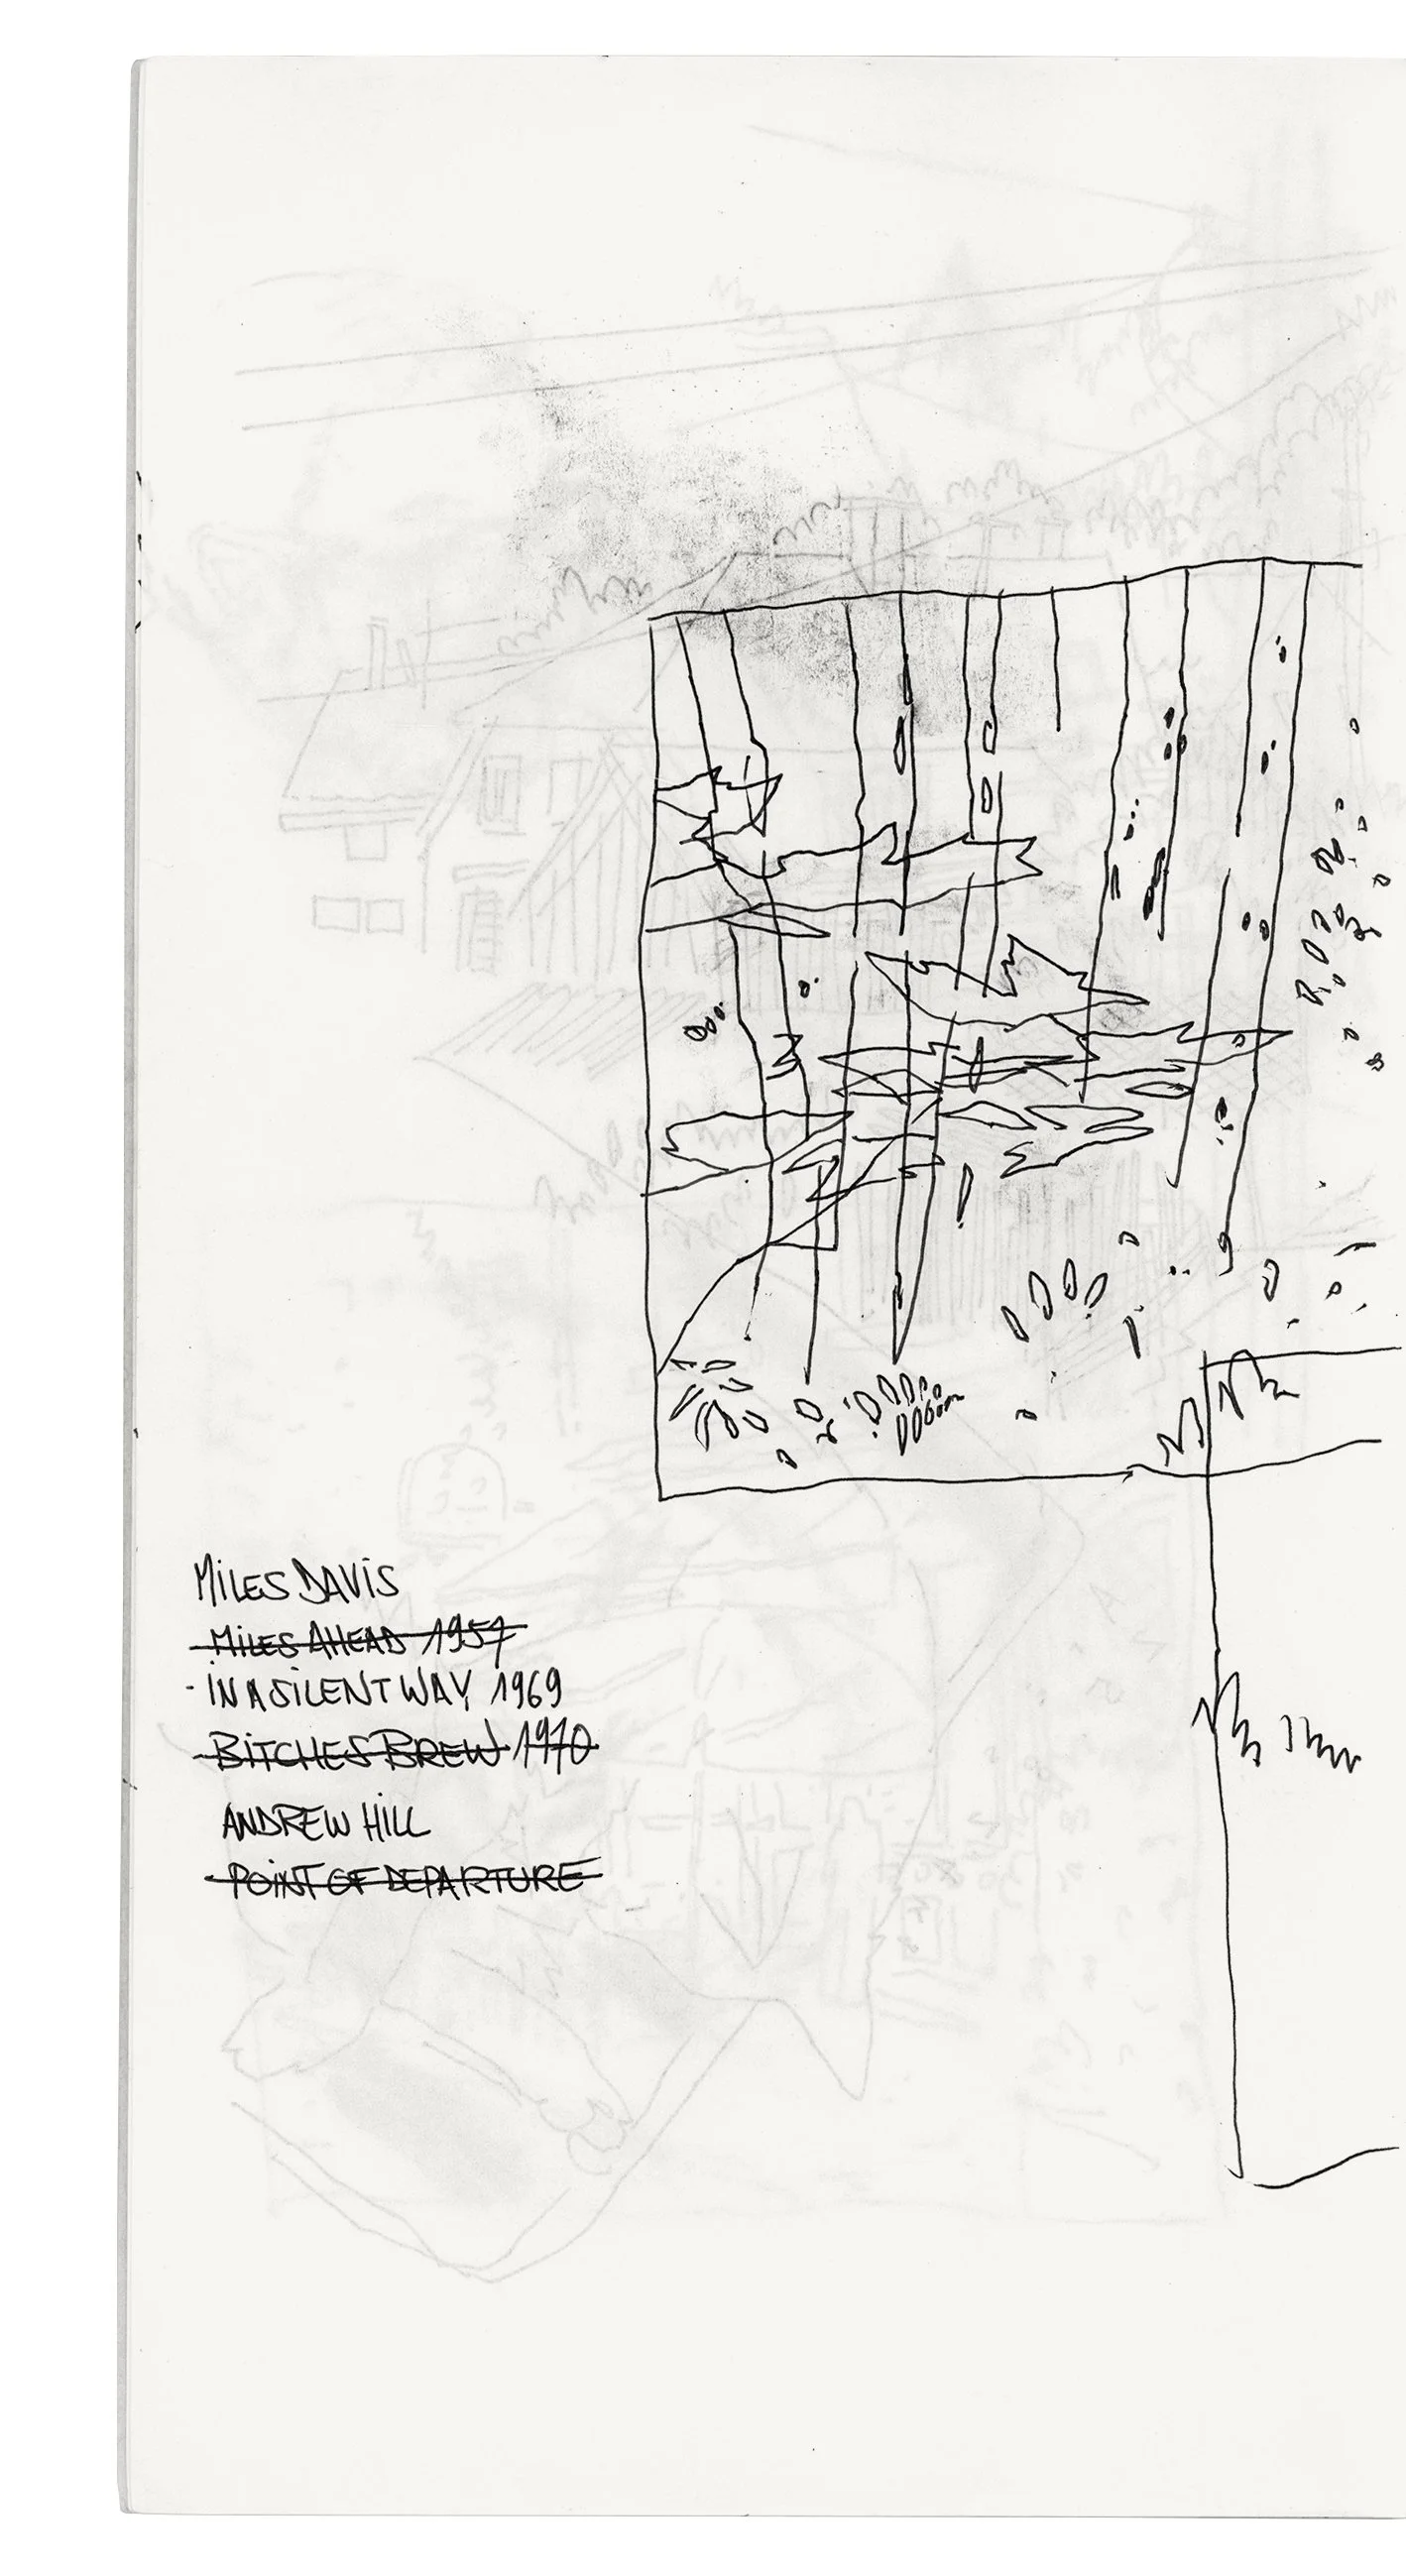 MILES DAVIS
- MILES AHEAD 1957
- IN A SILENT WAY 1969
- BITCHES BREW 1970
ANDREW HILL
- POINT OF DEPARTURE